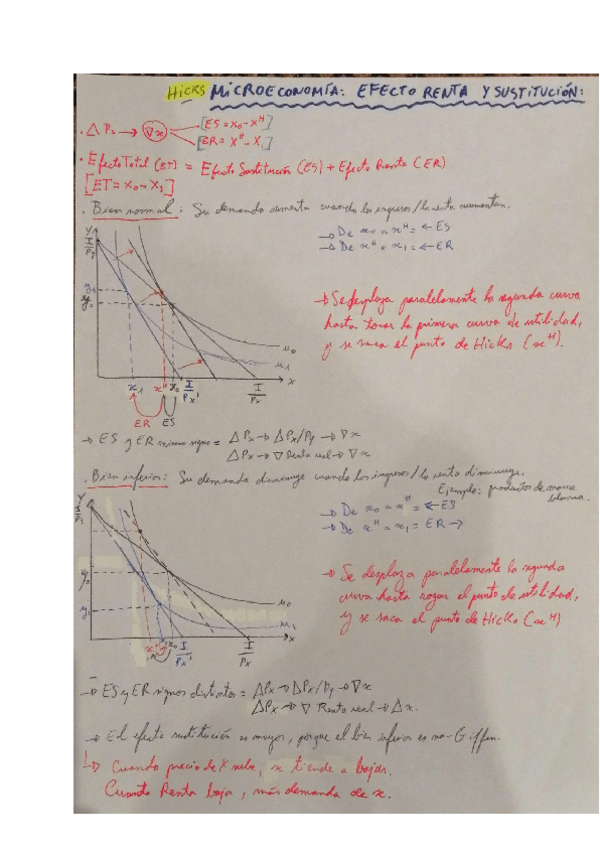 HICKS MICROECONOMÍA: EFECTO RENTA Y SUSTITUCIÓN:
[ES = X₀ - Xᴴ]
. △ Pₓ → ▽x
[ER = Xᴴ - X₁]
. Efecto Total (ET) = Efecto Sustitución (ES) + Efecto Renta (ER)
[ET = X₀ - X₁]
. Bien normal: Su demanda aumenta cuando los ingresos/la renta aumentan.
→ De x₀ a xᴴ = ← ES
→ De xᴴ a x₁ = ← ER
Y
I/Py
→ Se desplaza paralelamente la segunda curva
hasta tocar la primera curva de utilidad,
y se saca el punto de Hicks (xᴴ).
u₀
u₁
x₁ xᴴ x₀ I/Px' I/Px x
ER ES
→ ES y ER mismo signo = △Px → △Px/Py → ▽x
△Px → ▽ Renta real → ▽x
. Bien inferior: Su demanda disminuye cuando los ingresos/la renta disminuye.
Ejemplo: productos de marca
blanca.
→ De x₀ a xᴴ = ← ES
→ De xᴴ a x₁ = ER →
Y
→ Se desplaza paralelamente la segunda
curva hasta rozar el punto de utilidad,
y se saca el punto de Hicks (xᴴ)
y₀
y₁
u₀
u₁
I/Px' I/Px x
→ ES y ER signos distintos = △Px → △Px/Py → ▽x
△Px → ▽ Renta real → △x.
→ El efecto sustitución es mayor, porque el bien inferior es no-Giffen.
↳ Cuando precio de X sube, x tiende a bajar.
Cuanto Renta baja, más demanda de x.